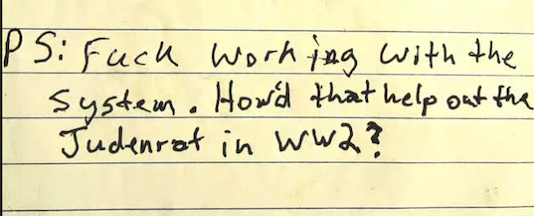 PS: Fuck working with the
system. How'd that help out the
Judenrat in WW2?